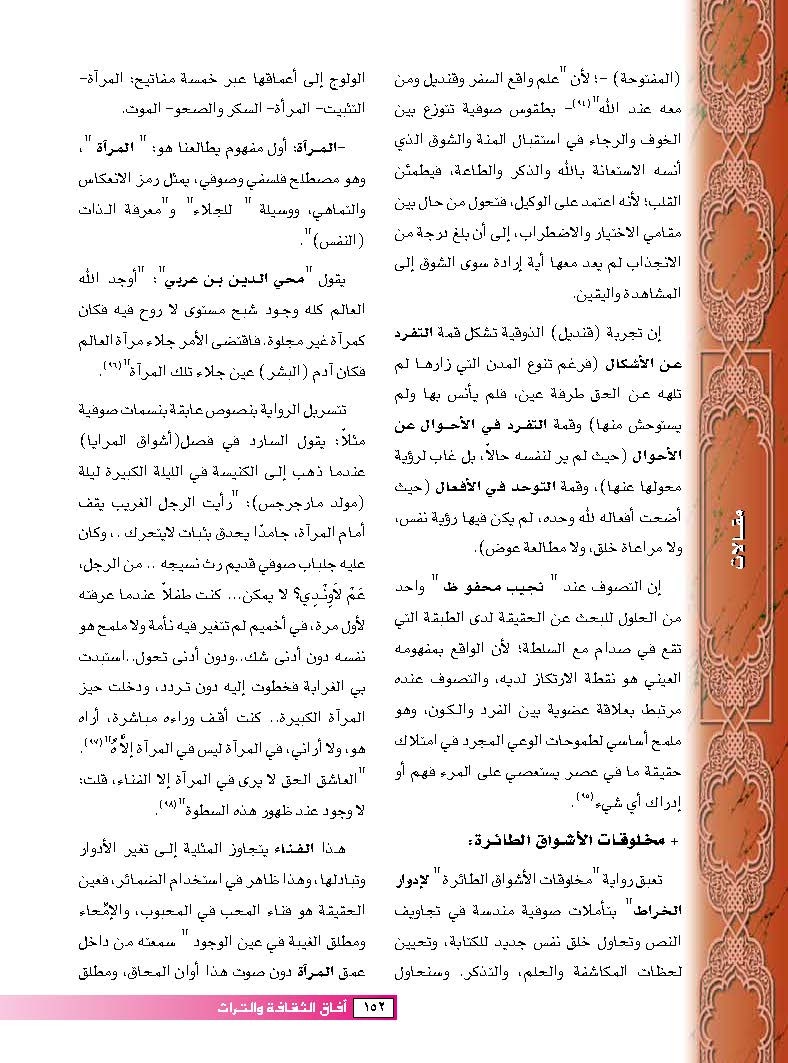 (المفتوحة) -؛ لأن "علم واقع السفر وقنديل ومن
معه عند الله"(٩٤)- بطقوس صوفية تتوزع بين
الخوف والرجاء في استقبال المنة والشوق الذي
أنسه الاستعانة بالله والذكر والطاعة، فيطمئن
القلب؛ لأنه اعتمد على الوكيل، فتحول من حال بين
مقامي الاختيار والاضطراب، إلى أن بلغ درجة من
الانجذاب لم يعد معها أية إرادة سوى الشوق إلى
المشاهدة واليقين.
إن تجربة (قنديل) الذوقية تشكل قمة التفرد
عن الأشكال (فرغم تنوع المدن التي زارها لم
تلهه عن الحق طرفة عين، فلم يأنس بها ولم
يستوحش منها) وقمة التفرد في الأحوال عن
الأحوال (حيث لم ير لنفسه حالاً، بل غاب لرؤية
محولها عنها)، وقمة التوحد في الأفعال (حيث
أضحت أفعاله لله وحده، لم يكن فيها رؤية نفس،
ولا مراعاة خلق، ولا مطالعة عوض).
إن التصوف عند " نجيب محفو ظ " واحد
من الحلول للبحث عن الحقيقة لدى الطبقة التي
تقع في صدام مع السلطة؛ لأن الواقع بمفهومه
العيني هو نقطة الارتكاز لديه، والتصوف عنده
مرتبط بعلاقة عضوية بين الفرد والكون، وهو
ملمح أساسي لطموحات الوعي المجرد في امتلاك
حقيقة ما في عصر يستعصي على المرء فهم أو
إدراك أي شيء(٩٥).
+ مخلوقات الأشواق الطائرة:
تعبق رواية "مخلوقات الأشواق الطائرة" لإدوار
الخراط" بتأملات صوفية مندسة في تجاويف
النص وتحاول خلق نفس جديد للكتابة، وتحيين
لحظات المكاشفة والحلم، والتذكر. وسنحاول
الولوج إلى أعماقها عبر خمسة مفاتيح: المرآة-
التثبيت- المرأة- السكر والصحو- الموت.
-المرآة: أول مفهوم يطالعنا هو: " المرآة "،
وهو مصطلح فلسفي وصوفي، يمثل رمز الانعكاس
والتماهي، ووسيلة " للجلاء" و"معرفة الذات
(النفس)".
يقول "محي الدين بن عربي": "أوجد الله
العالم كله وجود شبح مستوى لا روح فيه فكان
كمرآة غير مجلوة. فاقتضى الأمر جلاء مرآة العالم
فكان آدم (البشر) عين جلاء تلك المرآة"(٩٦).
تتسربل الرواية بنصوص عابقة بنسمات صوفية
مثلاً: يقول السارد في فصل(أشواق المرايا)
عندما ذهب إلى الكنيسة في الليلة الكبيرة ليلة
(مولد مارجرجس): "رأيت الرجل الغريب يقف
أمام المرآة، جامدًا يحدق بثبات لايتحرك ..، وكان
عليه جلباب صوفي قديم رث نسيجه .. من الرجل،
عَمْ لَاوِنْدِي؟ لا يمكن... كنت طفلاً عندما عرفته
لأول مرة، في أخميم لم تتغير فيه نأمة ولا ملمح هو
نفسه دون أدنى شك..ودون أدنى تحول..استبدت
بي الغرابة فخطوت إليه دون تردد، ودخلت حيز
المرآة الكبيرة.. كنت أقف وراءه مباشرة، أراه
هو، ولا أراني، في المرآة ليس في المرآة إلاَّهُ"(٩٧).
"العاشق الحق لا يرى في المرآة إلا الفناء، قلت:
لا وجود عند ظهور هذه السطوة"(٩٨).
هذا الفناء يتجاوز المثلية إلى تغير الأدوار
وتبادلها، وهذا ظاهر في استخدام الضمائر، فعين
الحقيقة هو فناء المحب في المحبوب، والامِّحاء
ومطلق الغيبة في عين الوجود " سمعته من داخل
عمق المرآة دون صوت هذا أوان المحاق، ومطلق
مقالات
١٥٢ آفاق الثقافة والتراث